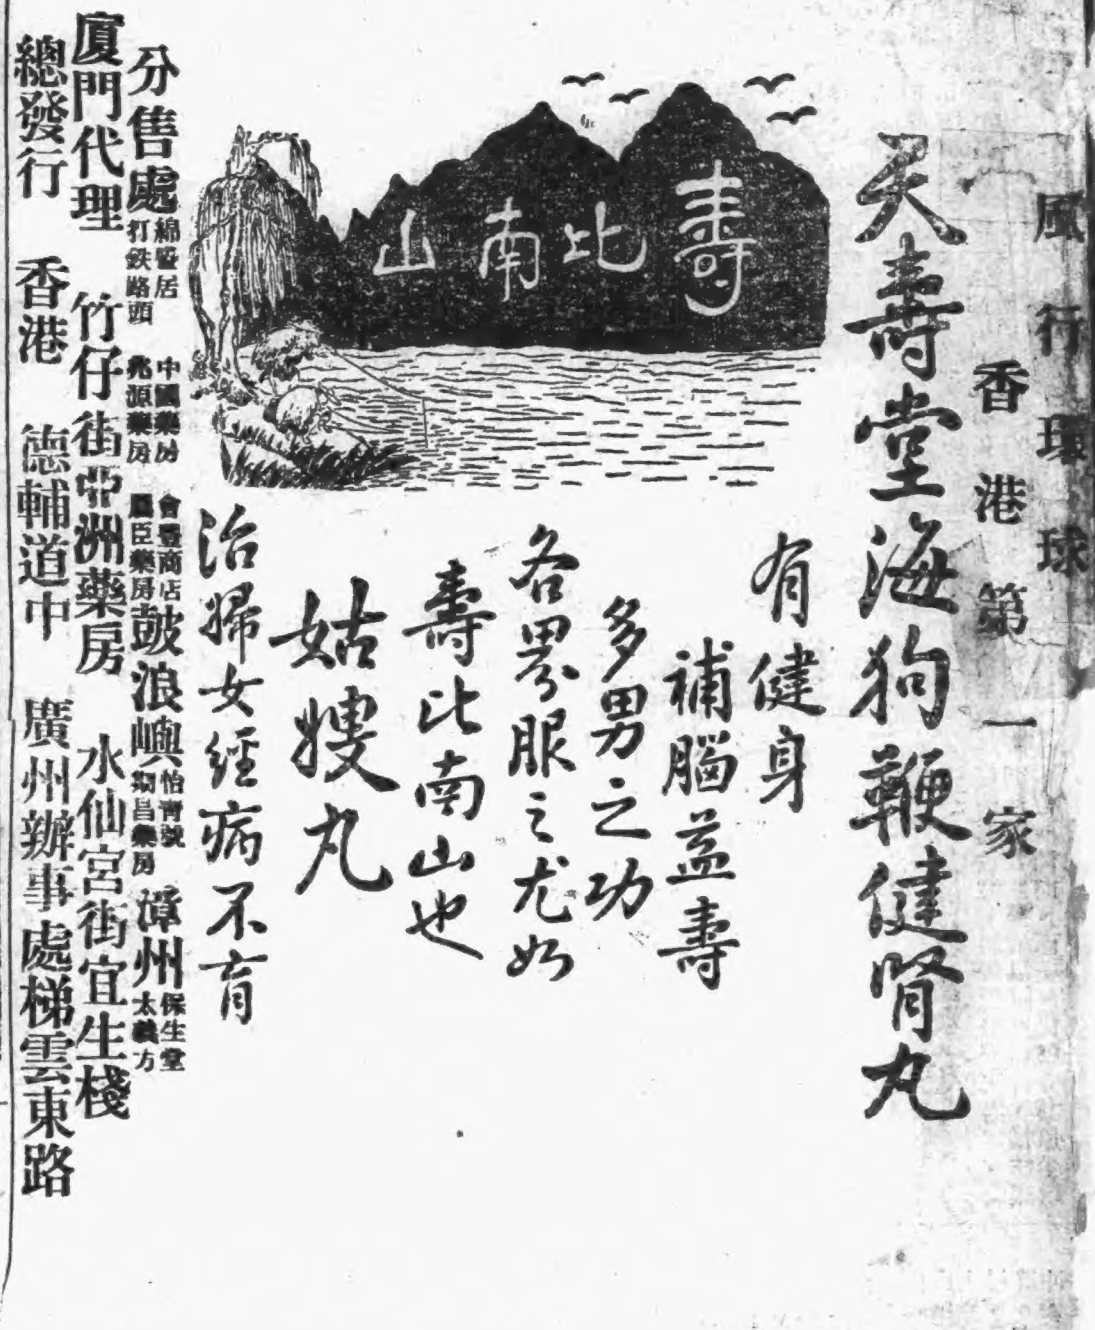 風行環球
香港第一家
天壽堂海狗鞭健腎丸
壽比南山
有健身
補腦益壽
多男之功
各界服之尤如
壽比南山也
姑嫂丸
治婦女經病不育
分售處
綿暨居 中國藥房 會豐商店
打鉄路頭 兆源藥房 臣藥房
鼓浪嶼
怡青號
昌藥房
漳州
保生堂
太義方
廈門代理 竹仔街亞洲藥房 水仙宮街宜生棧
總發行 香港 德輔道中 廣州辦事處梯雲東路